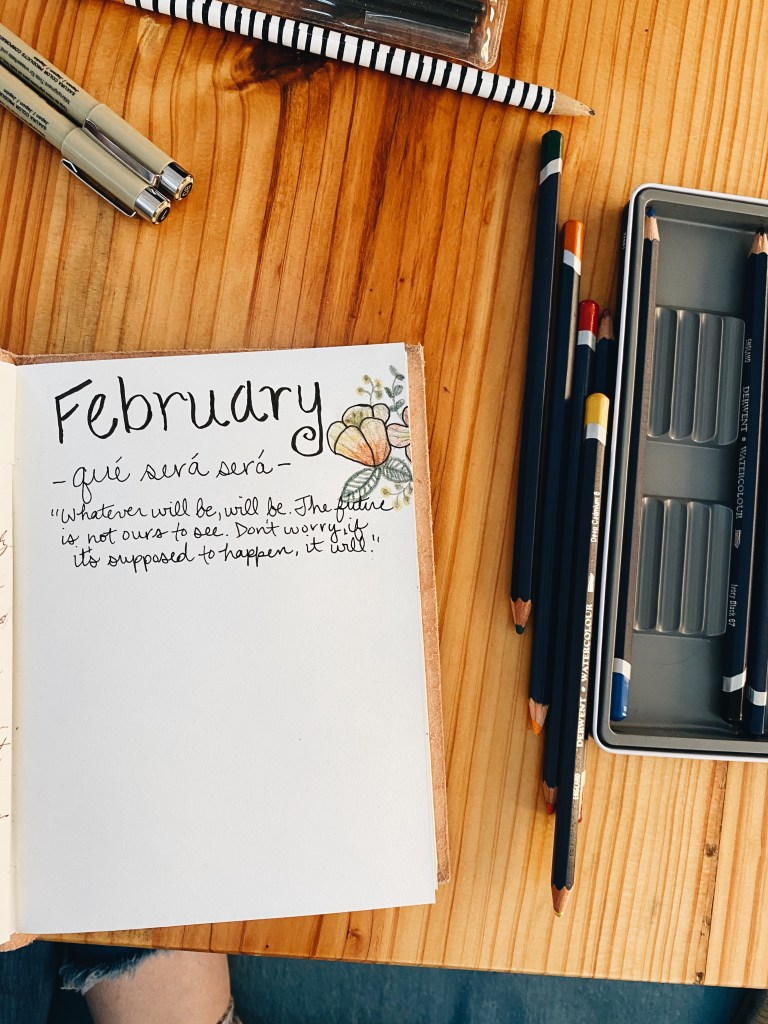 February
-qué será será-
"Whatever will be, will be. The future
is not ours to see. Don't worry, if
it's supposed to happen, it will."
DERWENT • WATERCOLOUR
Ivory Black 67
Deep Cadmium 6
DERWENT • WATERCOLOUR
ENGLAND